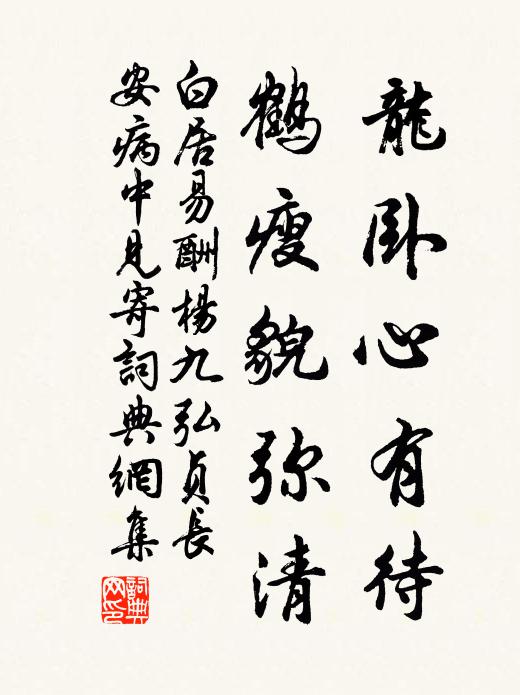 龍卧心有待
鶴瘦貌弥清
白居易酬楊九弘貞長
安病中見寄詞典網集
詞典
网印